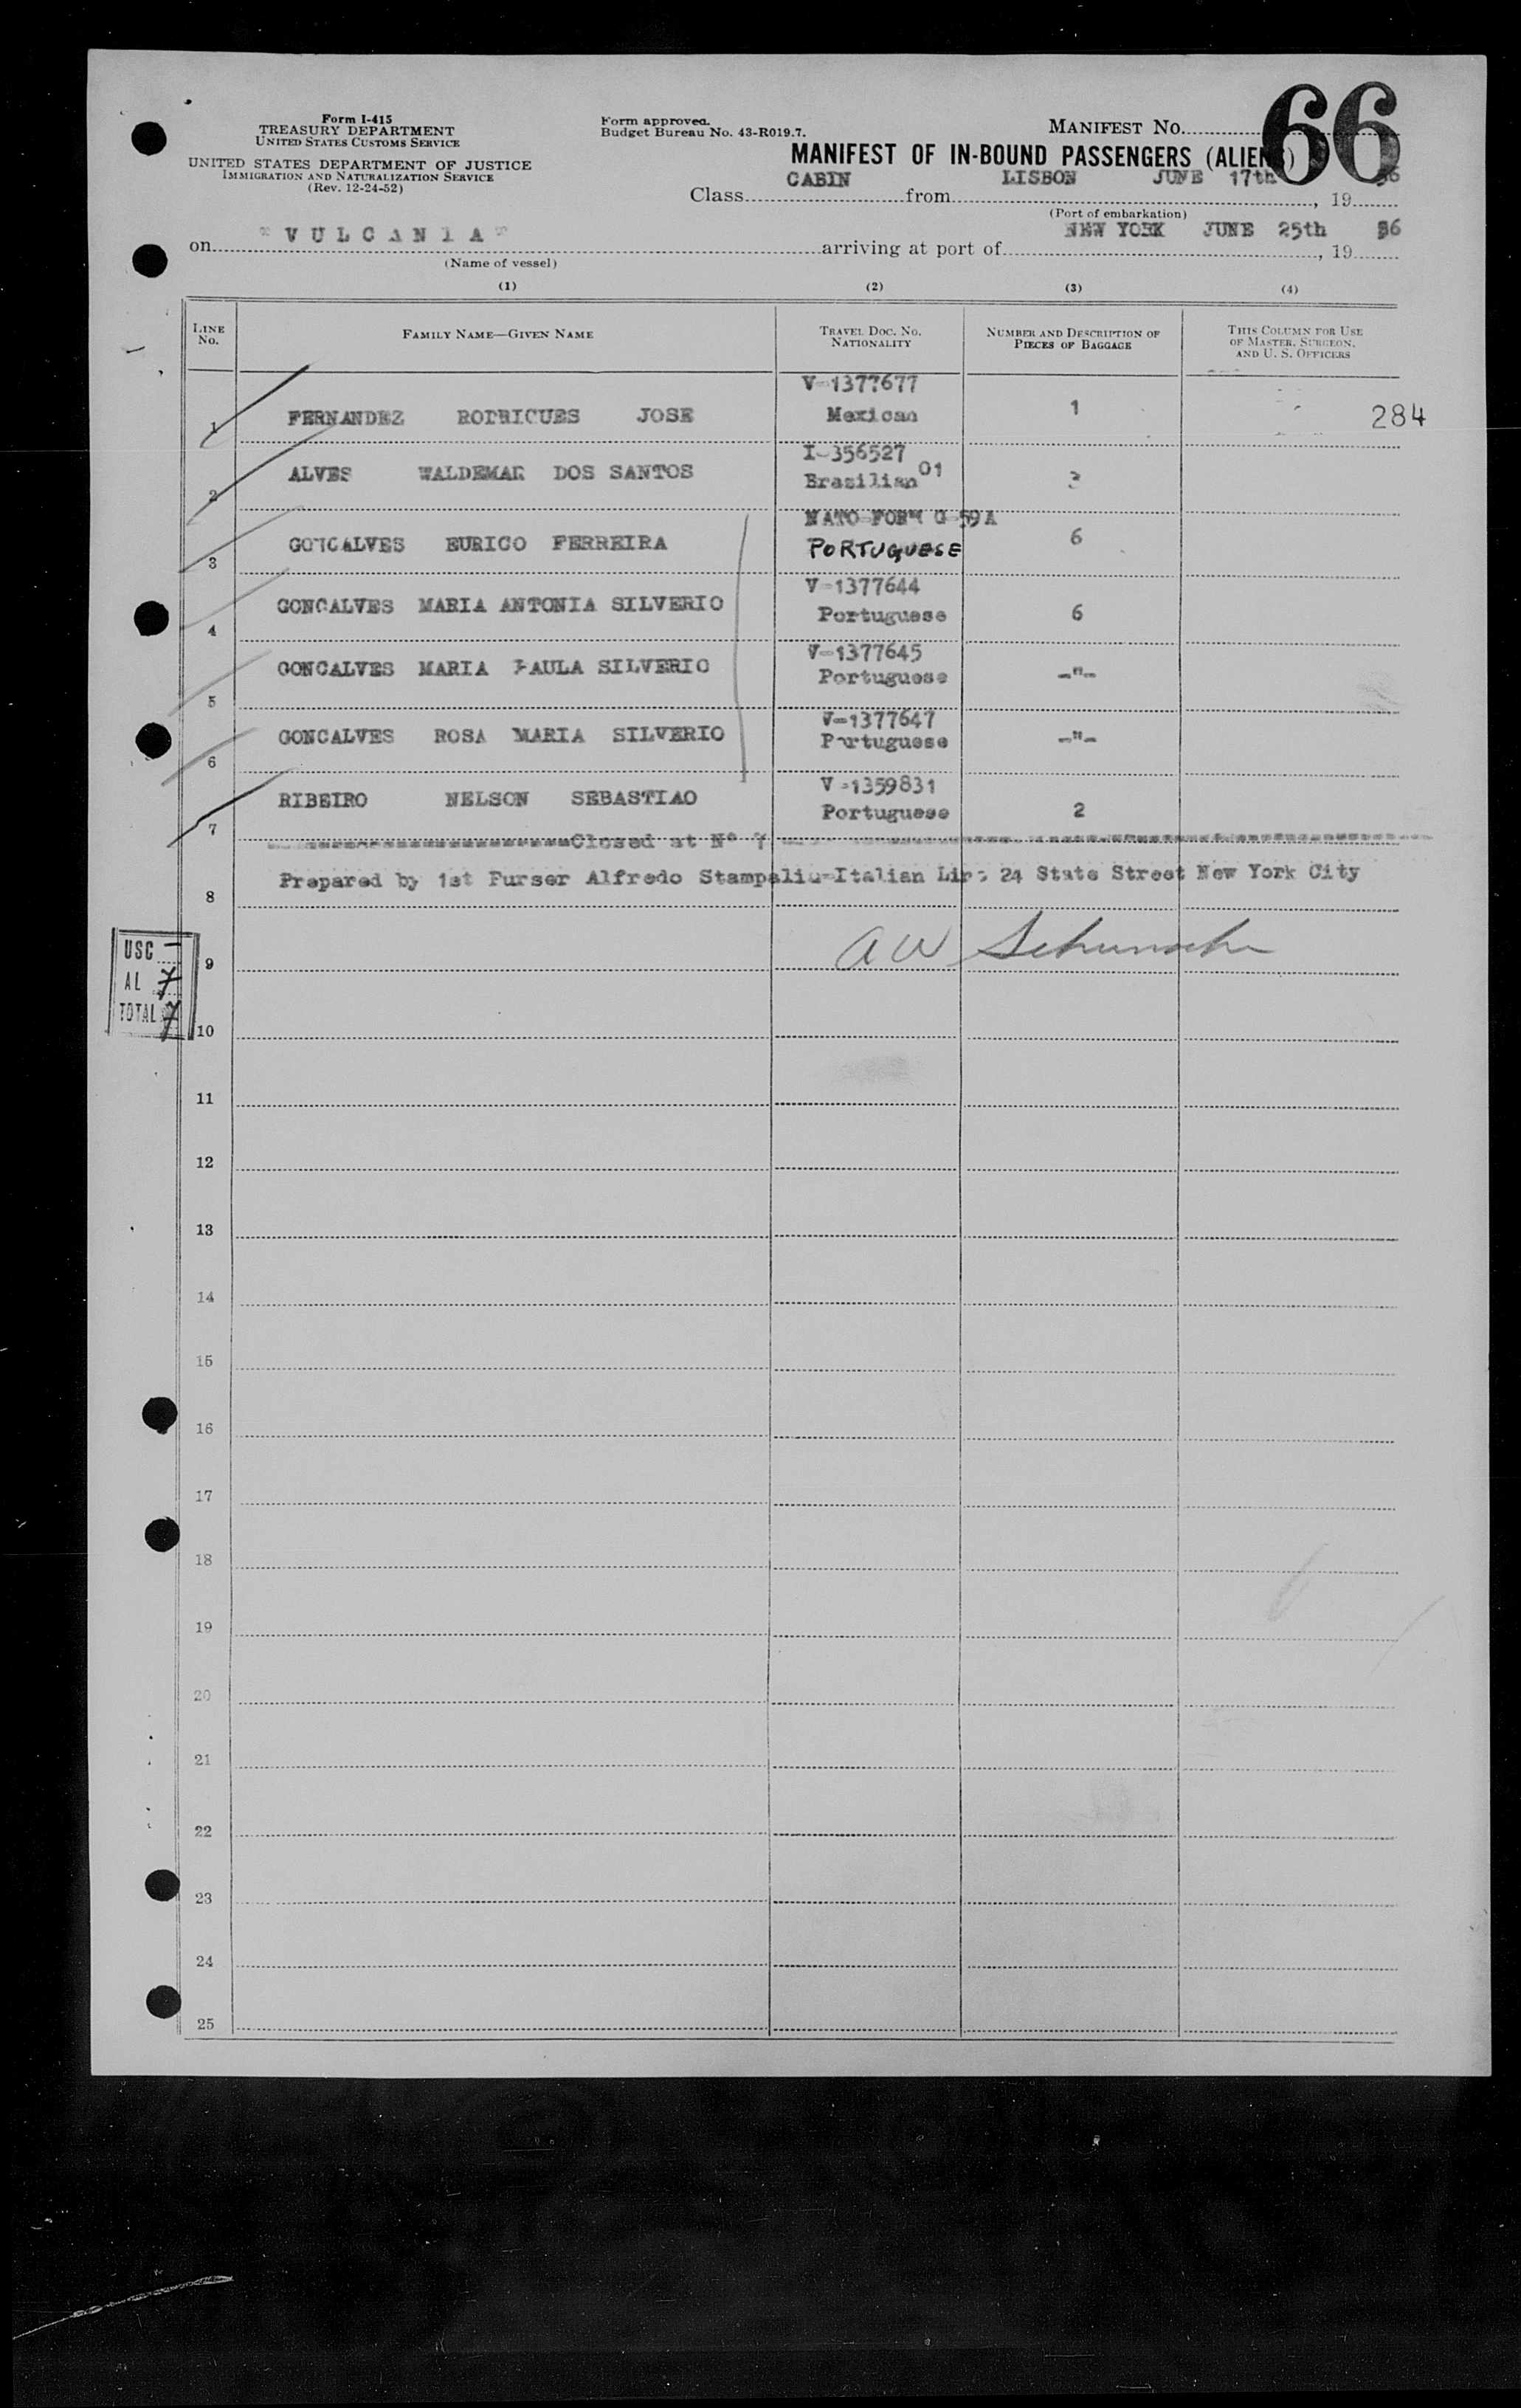 Form I-415
TREASURY DEPARTMENT
UNITED STATES CUSTOMS SERVICE
UNITED STATES DEPARTMENT OF JUSTICE
IMMIGRATION AND NATURALIZATION SERVICE
(Rev. 12-24-52)
Form approved.
Budget Bureau No. 43-R019.7.
MANIFEST No. 66
MANIFEST OF IN-BOUND PASSENGERS (ALIENS)
Class CABIN from LISBON JUNE 17th, 1956
(Port of embarkation)
on "VULCANIA" arriving at port of NEW YORK JUNE 25th, 1956
(Name of vessel)
(1) (2) (3) (4)
LINE No. FAMILY NAME—GIVEN NAME TRAVEL DOC. NO. NATIONALITY NUMBER AND DESCRIPTION OF PIECES OF BAGGAGE THIS COLUMN FOR USE OF MASTER, SURGEON, AND U. S. OFFICERS
1 FERNANDEZ RODRIGUES JOSE V-1377677 Mexican 1 284
2 ALVES WALDEMAR DOS SANTOS I-356527 Brasilian 01 3
3 GONCALVES EURICO FERREIRA NATO FORM G-59A PORTUGUESE 6
4 GONCALVES MARIA ANTONIA SILVERIO V-1377644 Portuguese 6
5 GONCALVES MARIA PAULA SILVERIO V-1377645 Portuguese -"-
6 GONCALVES ROSA MARIA SILVERIO V-1377647 Portuguese -"-
7 RIBEIRO NELSON SEBASTIAO V-1359831 Portuguese 2
Closed at Nº 7
8 Prepared by 1st Purser Alfredo Stampalia-Italian Line 24 State Street New York City
USC -
AL 7
TOTAL 7
9 A W
10
11
12
13
14
15
16
17
18
19
20
21
22
23
24
25